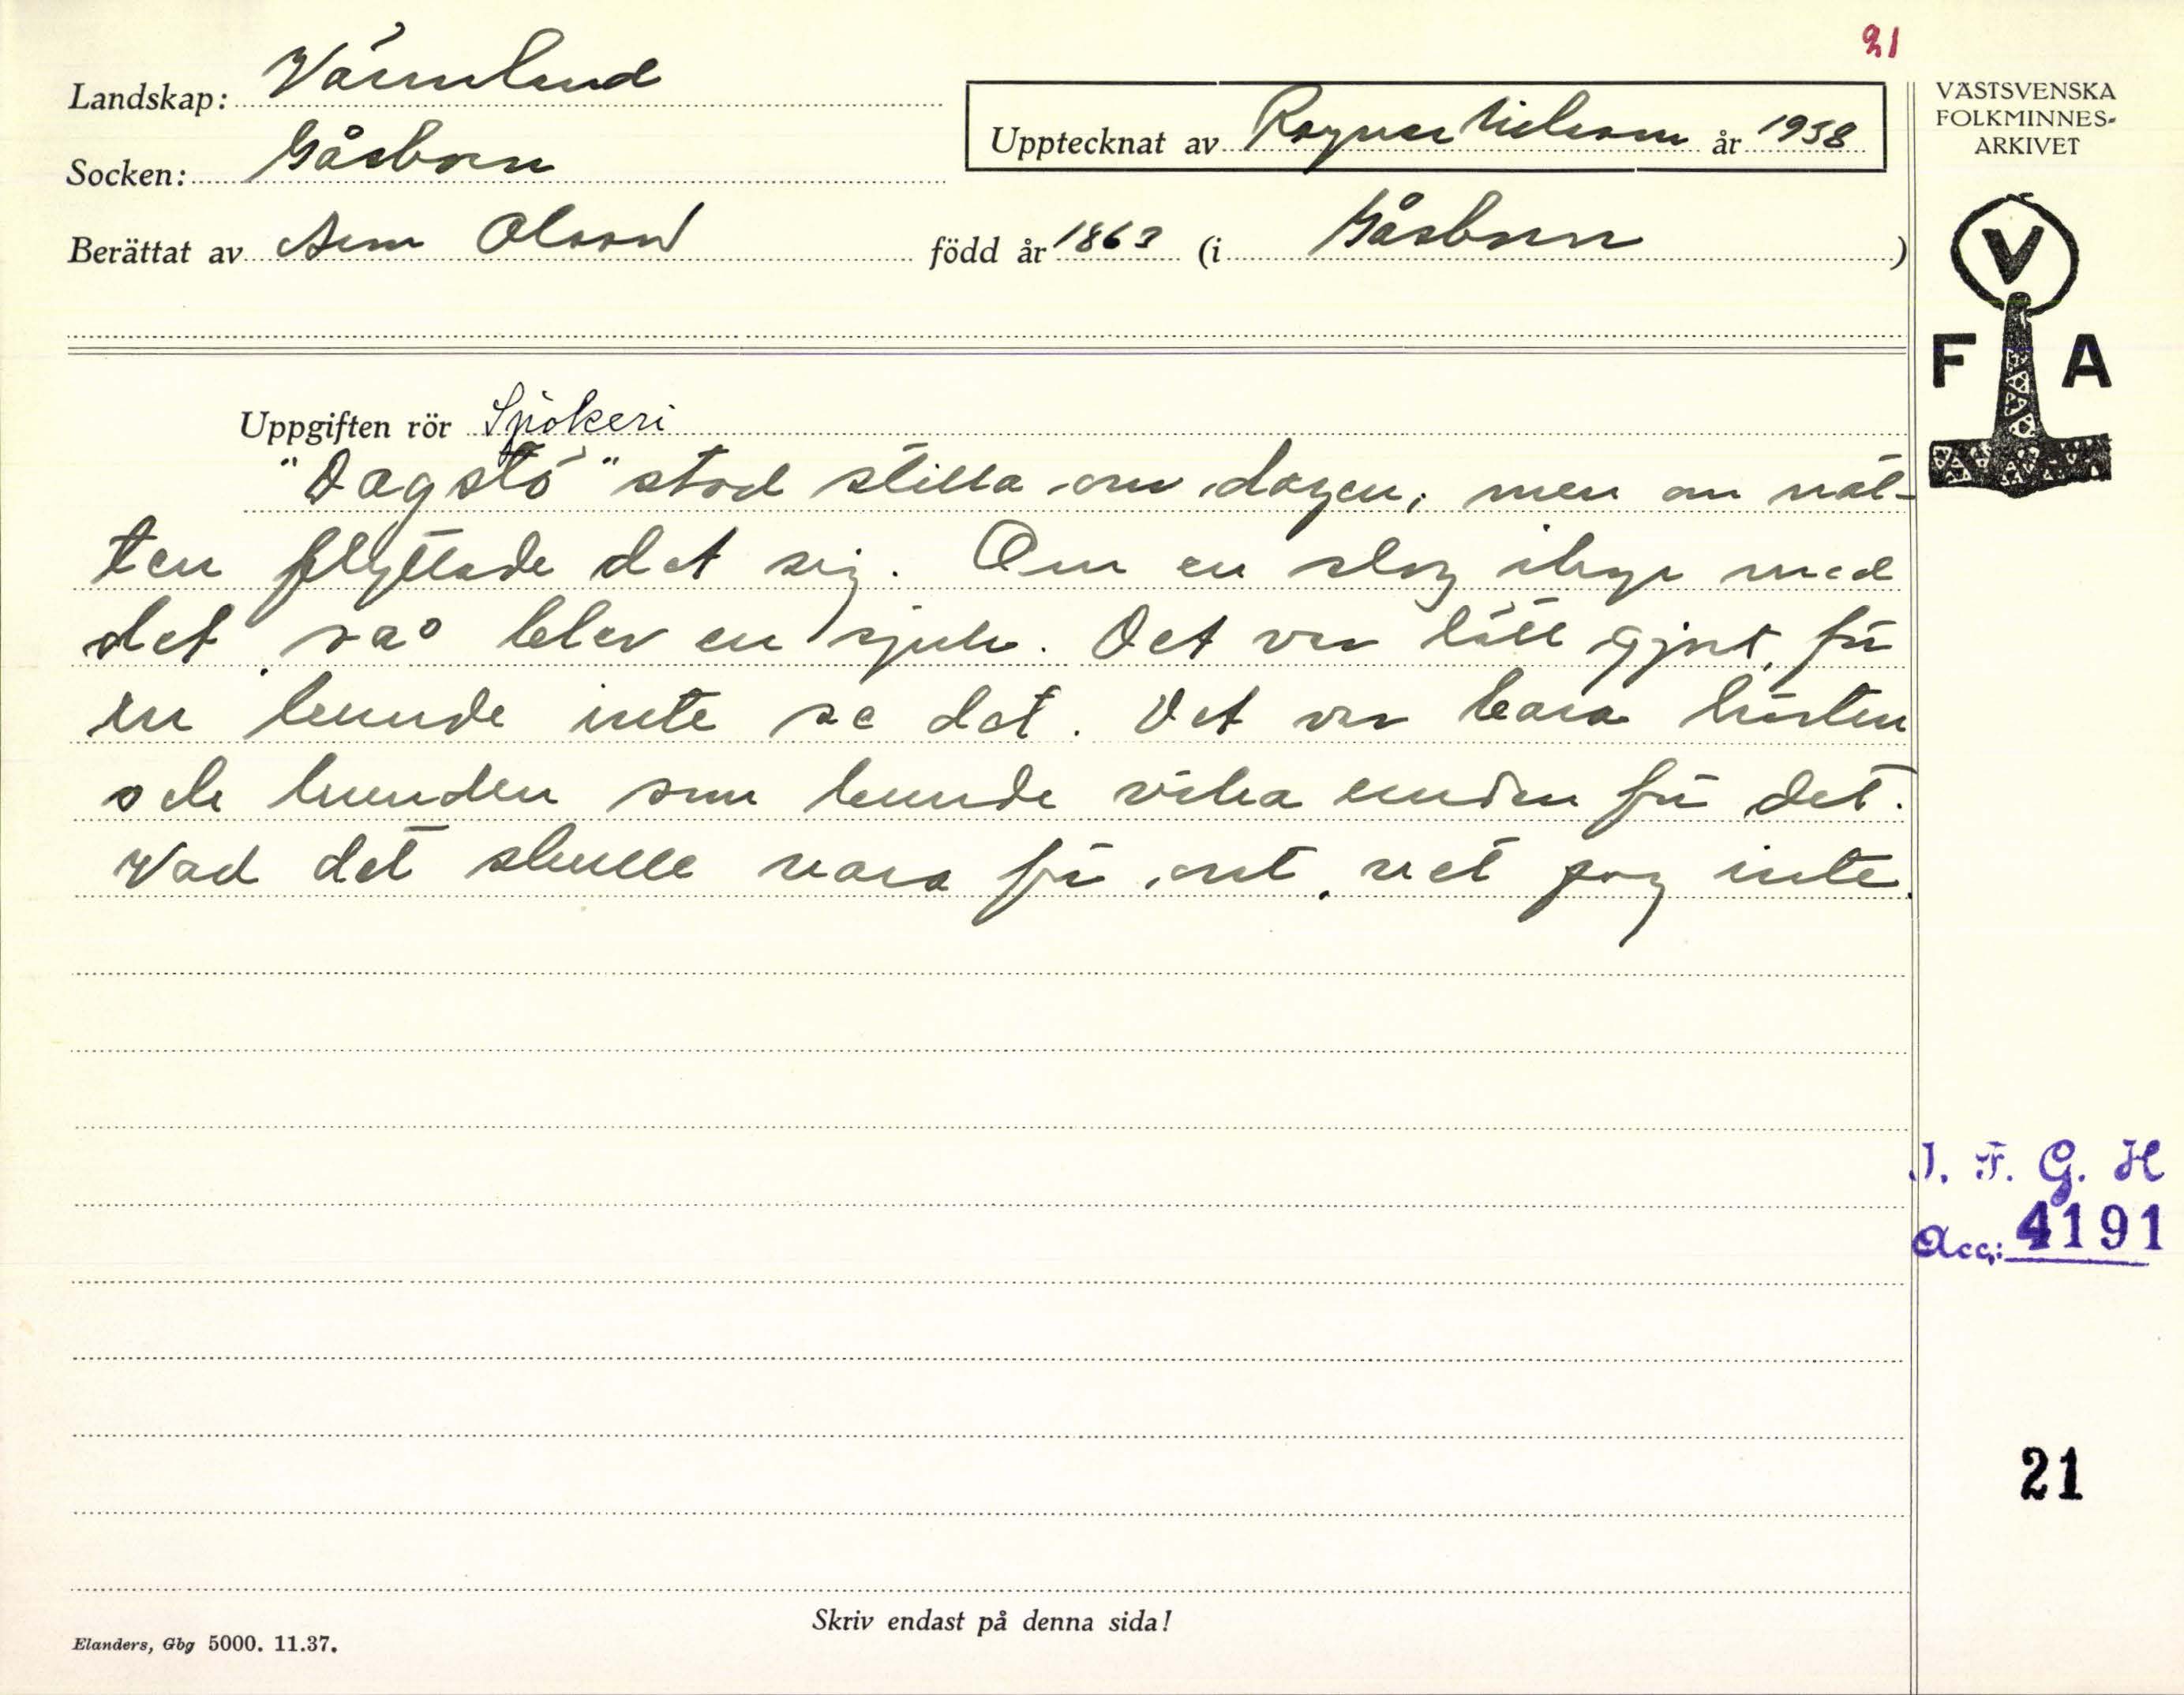 21
Landskap: Värmland
Socken: Gåsborn
Upptecknat av Ragnar Nilsson år 1938
Berättat av Olsson född år 1863 (i Gåsborn)
VÄSTSVENSKA
FOLKMINNES-
ARKIVET
V
F A
Uppgiften rör Spökeri
"Dagstö" stod stilla om dagen, men om nat-
ten flyttade det sig. Om en slog ihop med
det, så blev en sjuk. Det var lätt gjort, för
en kunde inte se det. Det var bara hästen
och hunden som kunde vika undan för det.
Vad det skulle vara för ont, vet jag inte.
I. F. G. H
Acc: 4191
21
Skriv endast på denna sida!
Elanders, Gbg 5000. 11.37.